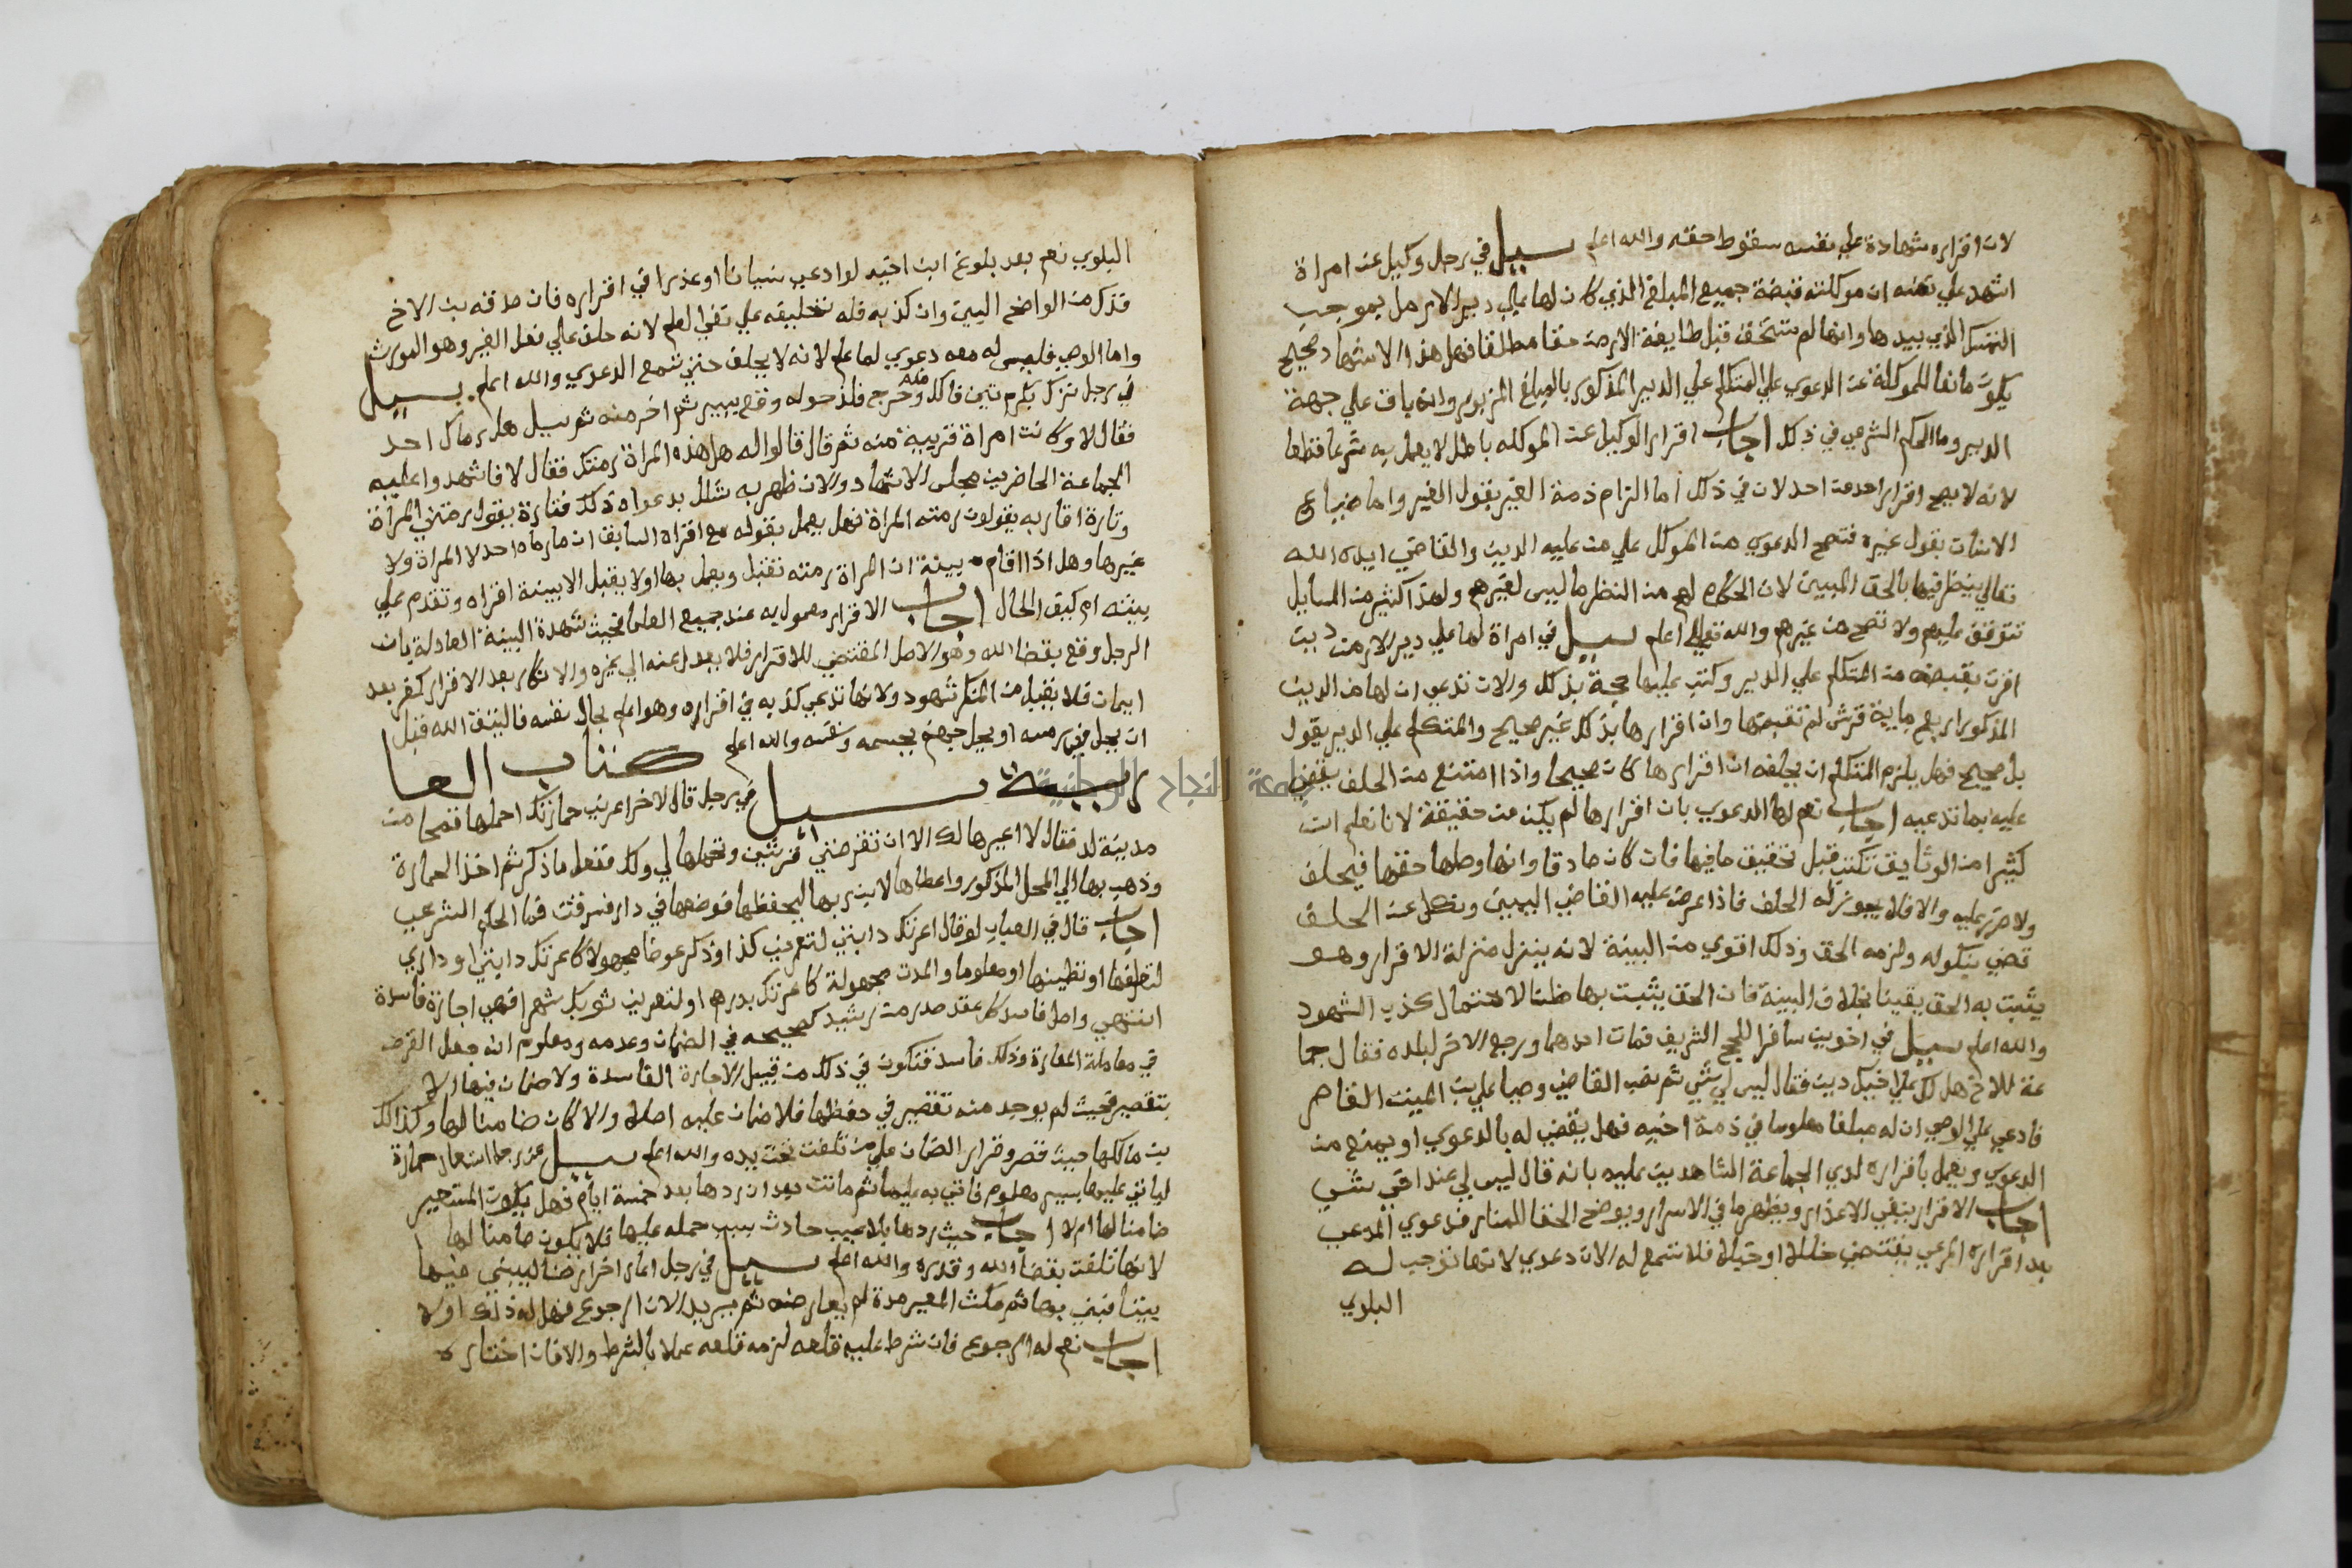 لان اقراره شهادة علي نفسه بسقوط حقه والله اعلم سيل في رجل وكيل عن امراة
اشهد علي نفسه ان موكلته قبضة جميع المبلغ الذي كان لها علي دير الارمل بموجب
التمسك الذي بيدها وانها لم تستحق قبل طايفة الارمن حقا مطلقا فهل هذا الاشهاد صحيح
يكون مانعا للموكلة عن الدعوي علي المتكلم علي الدير المذكور بالمبلغ المزبور وانه باق علي جهة
الدير وما الحكم الشرعي في ذلك اجاب اقرار الوكيل عن الموكله باطل لا يعمل به شرعا قطعا
لانه لا يصح اقرار احد عن احد لان في ذلك اما الزام ذمة الغير بقول الغير واما ضياع
الاثبات بقول غيره فتصح الدعوي من الموكل علي من عليه الدين والقاضي ايده الله
تعالي ينظر فيها بالحق المبين لان الحكام لهم من النظر ما ليس لغيرهم ولهذا كثير من المسايل
تتوقف عليهم ولا تصح من غيرهم والله تعالي اعلم سيل في امراة لها علي دير الارمن دين
اقرت بقبضه من المتكلم علي الدير وكتب عليها حجة بذلك والان تدعي ان لها من الدين
المذكور اربع ماية قرش لم تقبضها وان اقرارها بذلك غير صحيح والمتكلم علي الدير يقول
بل صحيح فهل يلزم المتكلم ان يحلفه ان اقرارها كان صحيحا واذا امتنع من الحلف يقضي
عليه بما تدعيه اجاب نعم لها الدعوي بان اقرارها لم يكن من حقيقة لانا نعلم ان
كثيرا من الوثايق تكتب قبل تحقيق ما فيها فان كان صادقا وانها وصلها حقها فيحلف
ولا ضرر عليه والا فلا يجوز له الحلف فاذا عرض عليه القاضي اليمين ونكل عن الحلف
قضي بنكوله ولزمه الحق وذلك اقوي من البينة لانه ينزل منزلة الاقرار وهو
يثبت به الحق يقينا بخلاف البينة فان الحق يثبت بها ظنا لاحتمال كذب الشهود
والله اعلم سيل في اخوين سافرا للحج الشريف فمات احدهما ورجع الاخر لبلده فقال جما
عة للاخ هل لك علي اخيك دين فقال ليس لي شي ثم نصب القاضي وصيا علي بن الميت القاصر
فادعي علي الوصي ان له مبلغا معلوما في ذمة اخيه فهل يقضي له بالدعوي او يمنع من
الدعوي ويعمل باقراره لدي الجماعة الشاهدين عليه بانه قال ليس لي عند اخي شي
اجاب الاقرار ينفي الاعذار ويظهر ما في الاسرار ويوضح الخفا للمنار فدعوي المدعي
بعد اقراره المرعي يقتضي خللا او حيلة فلا تسمع له الان دعوي لانها توجب له
البلوي
البلوي نعم بعد بلوغ ابن اخيه لو ادعي نسيانا او عذرا في اقراره فان صدقه بن الاخ
فذلك من الواضح البين وان كذبه فله تحليفه علي نفي العلم لانه حلف علي فعل الغير وهو المورث
واما الوصي فليس له معه دعوي لما علم لانه لا يحلف حتي تسمع الدعوي والله اعلم سيل
في رجل نزل بكرم تين فاكل منه وخرج فلذ حوله وقع بيسير ثم اخر منه ثم سيل هل رماك احد
فقال لا وكانت امراة قريبة منه ثم قال قالوا له هل هذه المراة رمتك فقال لا فاشهدوا عليه
الجماعة الحاضرين مجلس الاشهاد والان ظهر به شلل بدعواه ذلك فتارة يقول رمتني المراة
وتارة اقاربه يقولون رمته المراة فهل يعمل بقوله مع اقراه السابق ان ما رماه احد لا المراة ولا
غيرها وهل اذا اقام بينة ان المراة رمته تقبل ويعمل بها او لا يقبل الا بينة اقراه وتقدم علي
بينته ام كيف الحال اجاب الاقرار معمول به عند جميع العلما فحيث شهدة البينة العادلة بان
الرجل وقع بقضا الله وهو الاصل المقتضي للاقرار فلا يعدل عنه الي غيره والانكار بعد الاقرار كفر بعد
ايمان فلا يقبل من المنكر شهود ولانها تدعي كذبه في اقراره وهو اعلم بحال نفسه فاليتق الله قبل
ان يحل في رمسه او يحل جهنم بجسمه ونفسه والله اعلم كتاب العا
رية سيل في رجل قال لاخر اعرني حمارتك احملها قمحا من
مدينة لد فقال لا اعيرها لك الا ان تقرضني قرشين وتحملها لي ولك ففعل ما ذكر ثم اخذ الحمارة
وذهب بها الي المحل المذكور واعطاها لابن ربها ليحفظها فوضعها في دار فسرقت فما الحكم الشرعي
اجاب قال في العباب لو قال اعرتك دابتي لتعيرني كذا وذكر عوضا مجهولا كاعرتك دابتي او داري
لتعلفها او تطينها او معلوما والمدة مجهولة كاعرتك بدرهم او لتعيرني ثوبك شهرا فهي اجارة فاسدة
انتهي واصل فاسد كل عقد صدر من رشيد كصحيحه في الضمان وعدمه ومعلوم انه جعل القرض
في معاملة العارة وذلك فاسد فتكون في ذلك من قبيل الاجارة الفاسدة ولا ضمان فيها الا
بتقصير فحيث لم يوجد منه تقصير في حفظها فلا ضمان عليه اصلا والا كان ضامنا لها وكذلك
بن مالكها حيث قصر وقرار الضمان علي من تلفت تحت يده والله اعلم سيل عن رجل استعار حمارة
لياتي عليها بسير معلوم فاتي به عليها ثم ماتت بعد ان ردها بعد خمسة ايام فهل يكون المستعير
ضامنا لها ام لا اجاب حيث ردها بلا عيب حادث بسبب حمله عليها فلا يكون ضامنا لها
لانها تلفت بقضا الله وقدره والله اعلم سيل في رجل اعار اخر ارضا ليبني فيها
بيتا فبني بها ثم مكث المعير مدة لم يعارضه ثم يريد الان الرجوع فهل له ذلك او لا
اجاب نعم له الرجوع فان شرط عليه قلعه لزمه قلعه عملا بالشرط والا فان اختاره
جامعة النجاح الوطنية